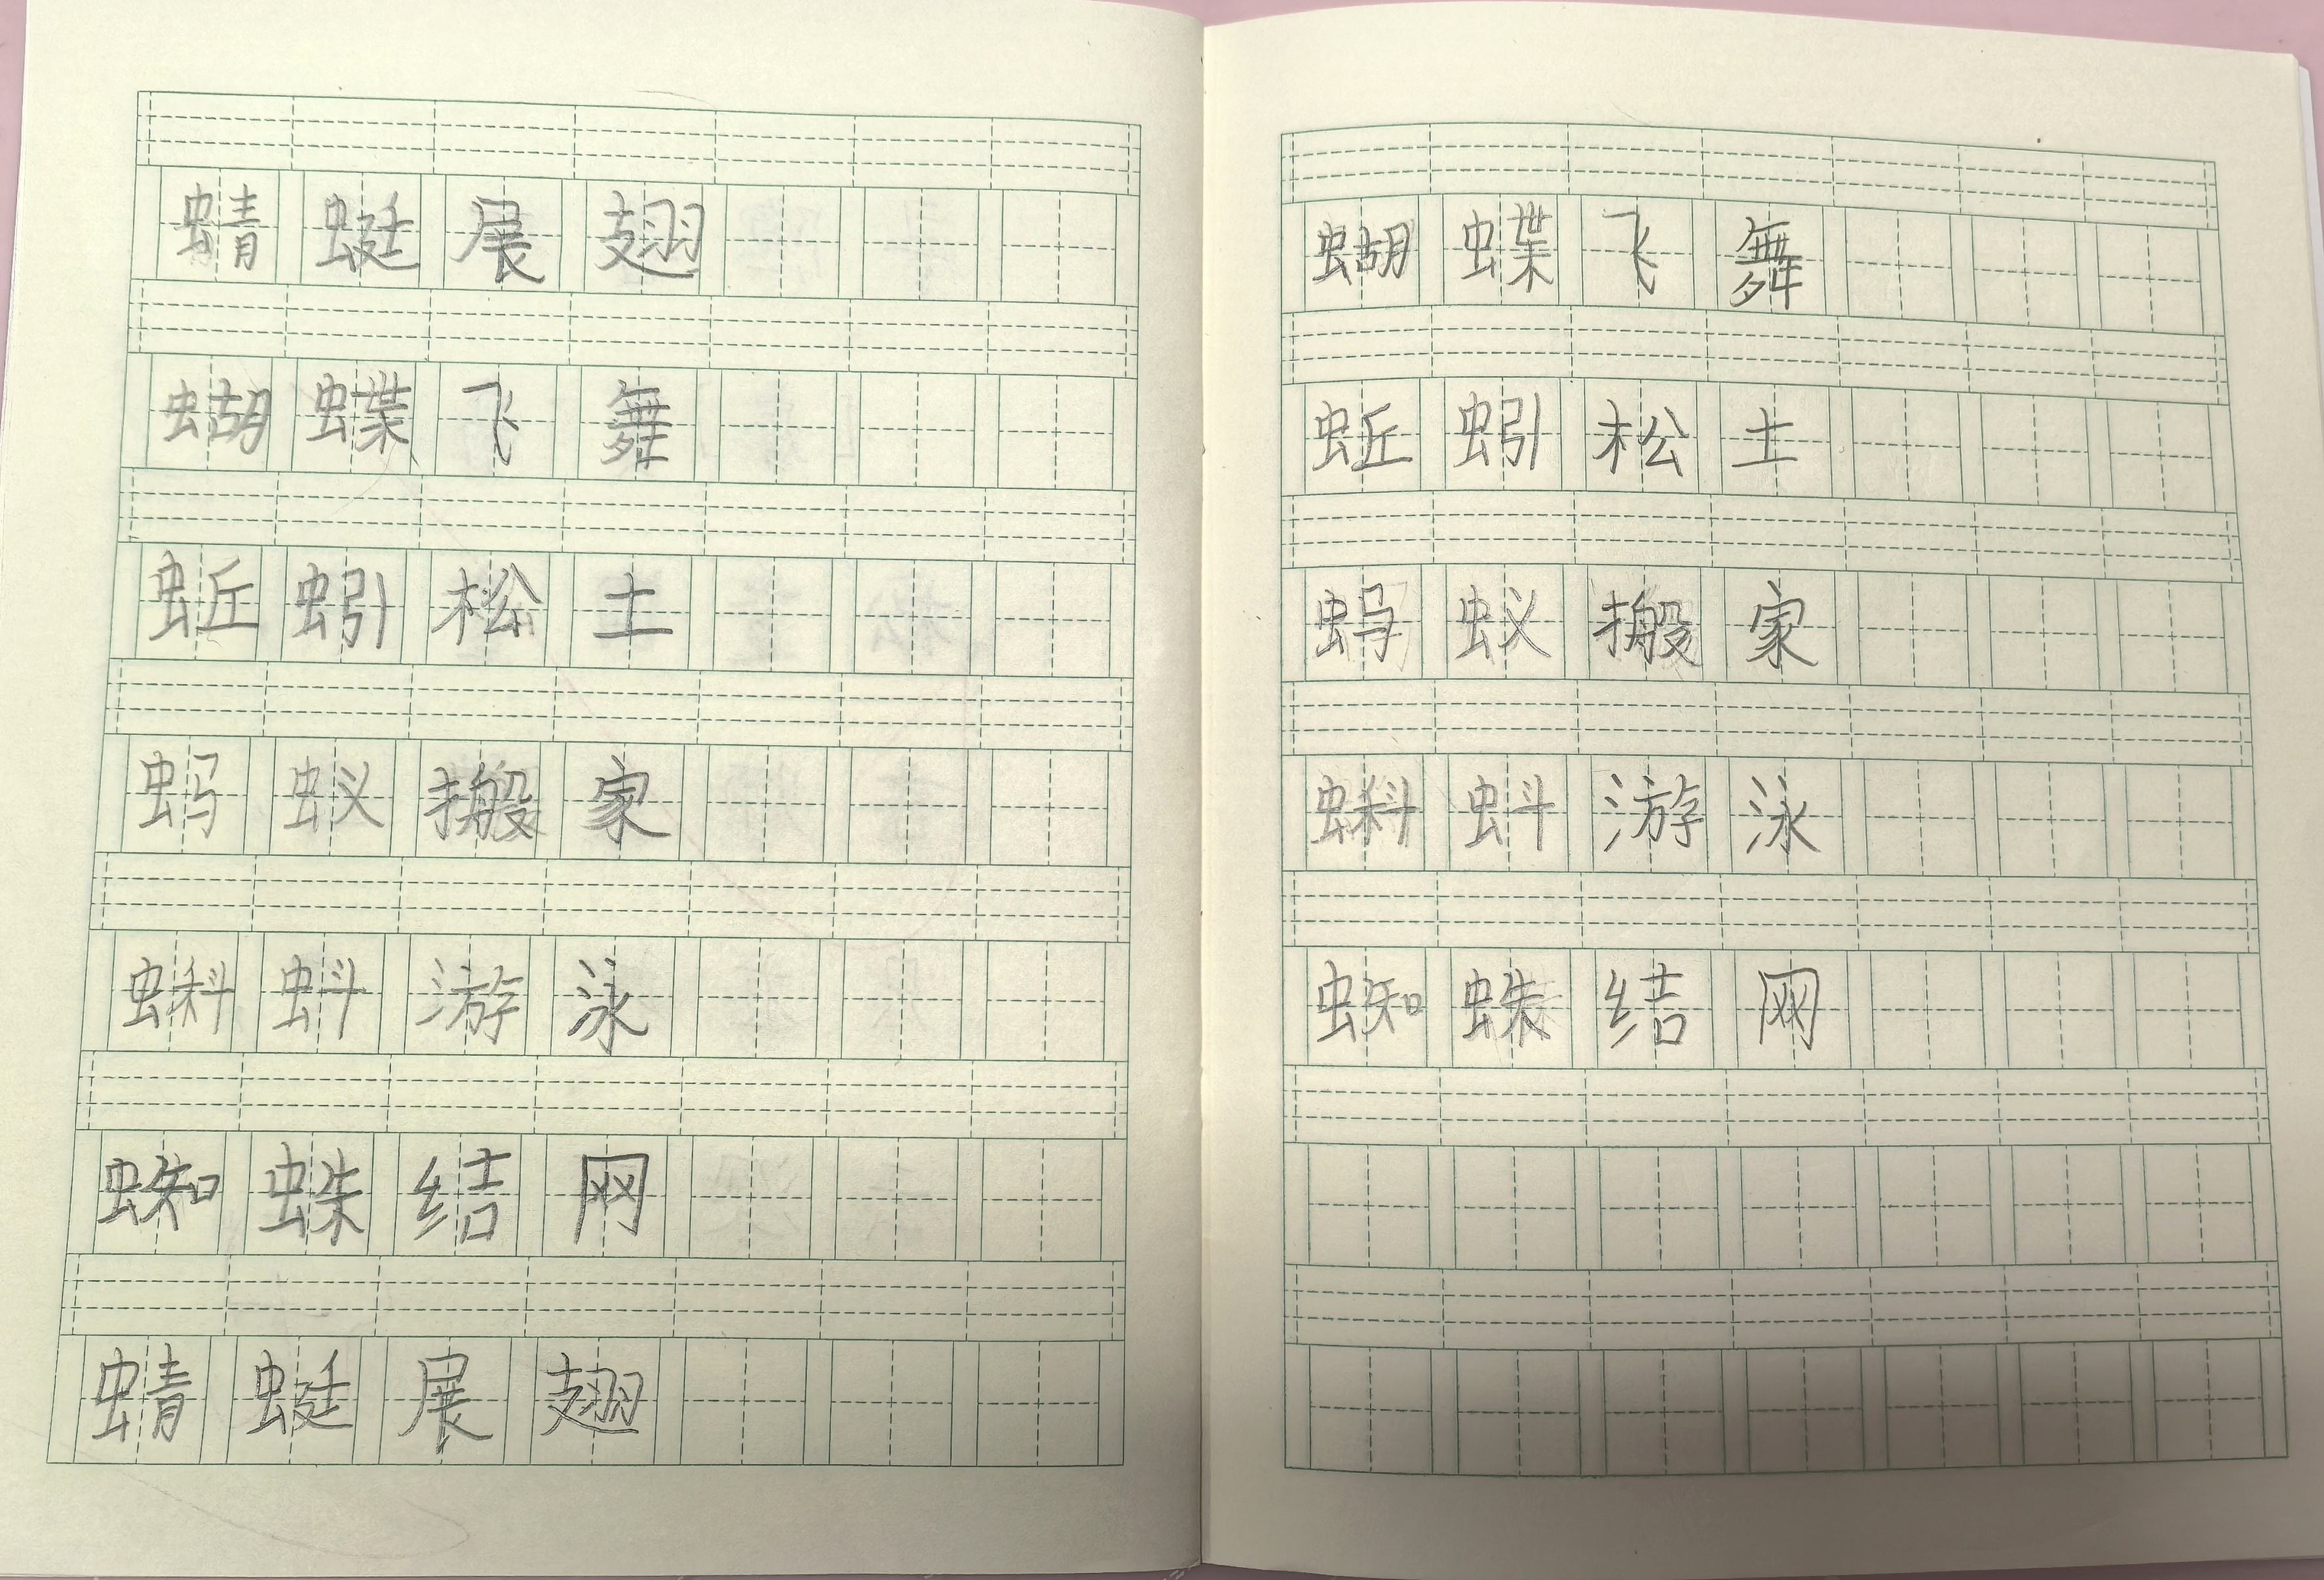 蜻蜓展翅
蝴蝶飞舞
蚯蚓松土
蚂蚁搬家
蝌蚪游泳
蜘蛛结网
蜻蜓展翅
蝴蝶飞舞
蚯蚓松土
蚂蚁搬家
蝌蚪游泳
蜘蛛结网